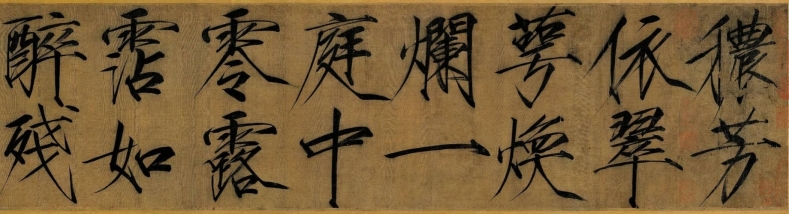 穠芳
依翠
萼煥
爛一
庭中
零露
霑如
醉残